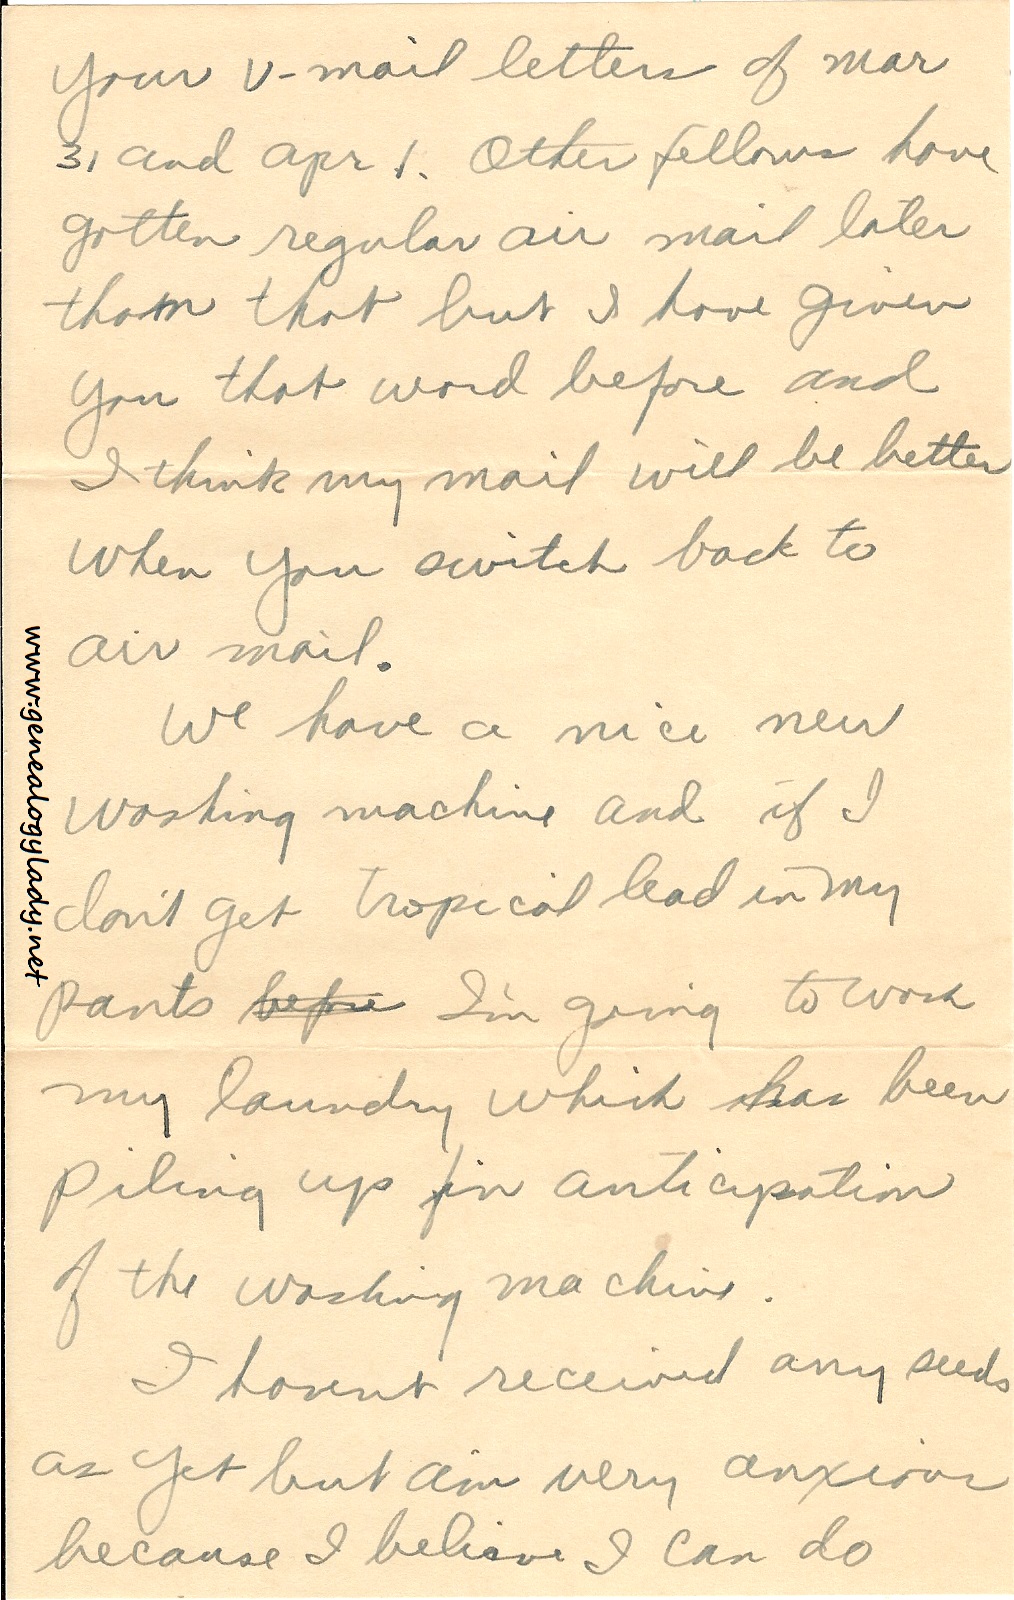 Your V-mail letters of mar
31 and apr 1. Other fellows have
gotten regular air mail later
than that but I have given
you that word before and
I think my mail will be better
when you switch back to
air mail.
We have a nice new
washing machine and if I
don't get tropical lead in my
pants before I'm going to work
my laundry which has been
piling up in anticipation
of the washing machine.
I haven't received any seeds
as yet but am very anxious
because I believe I can do
www.genealogylady.net